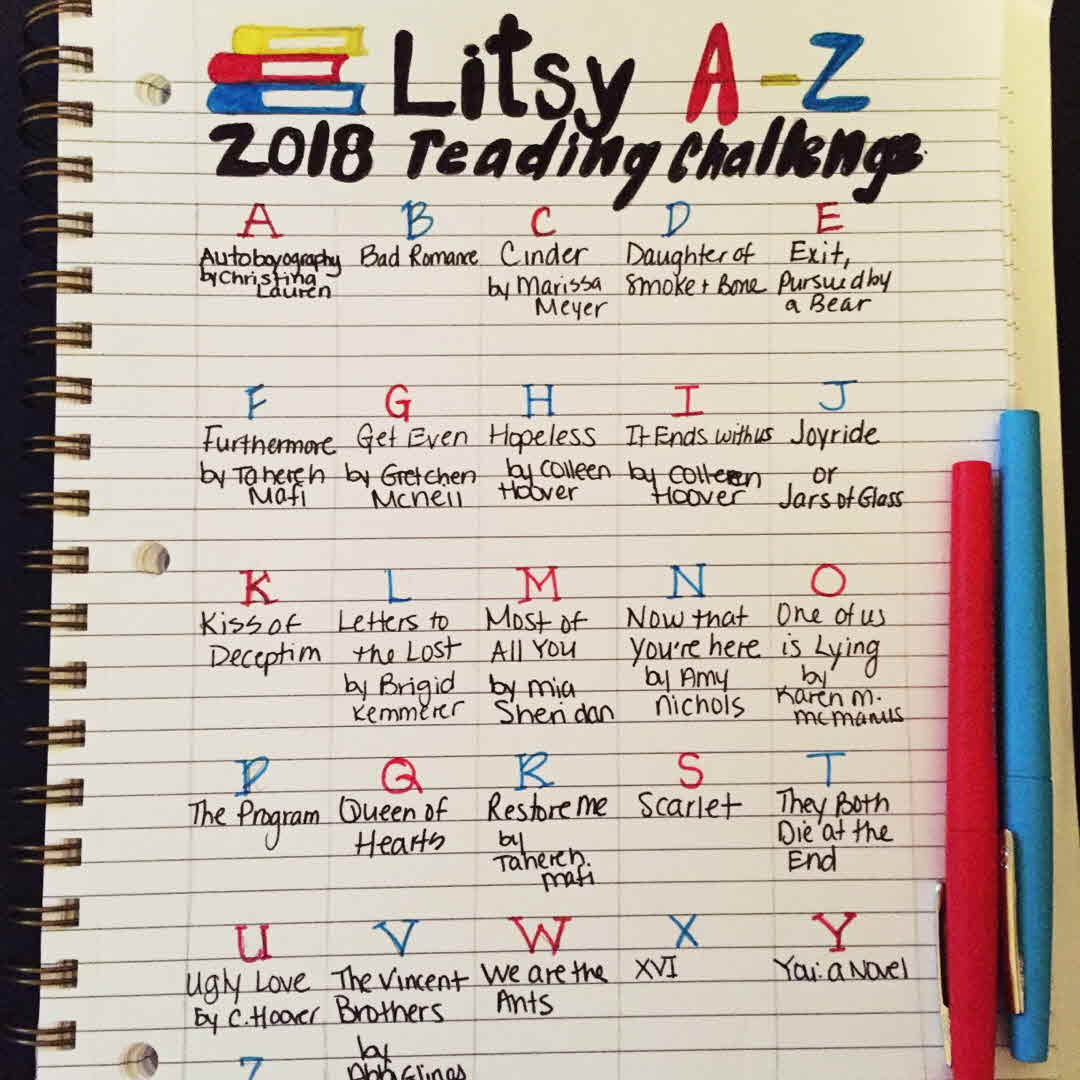 Litsy A-Z
2018 reading Challenge
A B C D E
Autoboyography
by Christina
Lauren
Bad Romance
Cinder
by Marissa
Meyer
Daughter of
Smoke + Bone
Exit,
Pursued by
a Bear
F G H I J
Furthermore
by Tahereh
Mafi
Get Even
by Gretchen
McNeil
Hopeless
by Colleen
Hoover
It Ends with us
by Colleen
Hoover
Joyride
or
Jars of Glass
K L M N O
Kiss of
Deception
Letters to
the Lost
by Brigid
Kemmerer
Most of
All You
by mia
Sheridan
Now that
you're here
by Amy
nichols
One of us
is Lying
by
Karen m.
mcmanus
P Q R S T
The Program
Queen of
Hearts
Restore Me
by
Tahereh.
mafi
Scarlet
They Both
Die at the
End
U V W X Y
Ugly Love
by C. Hoover
The Vincent
Brothers
by
Abbi Glines
We are the
Ants
XVI
You: a Novel
Z